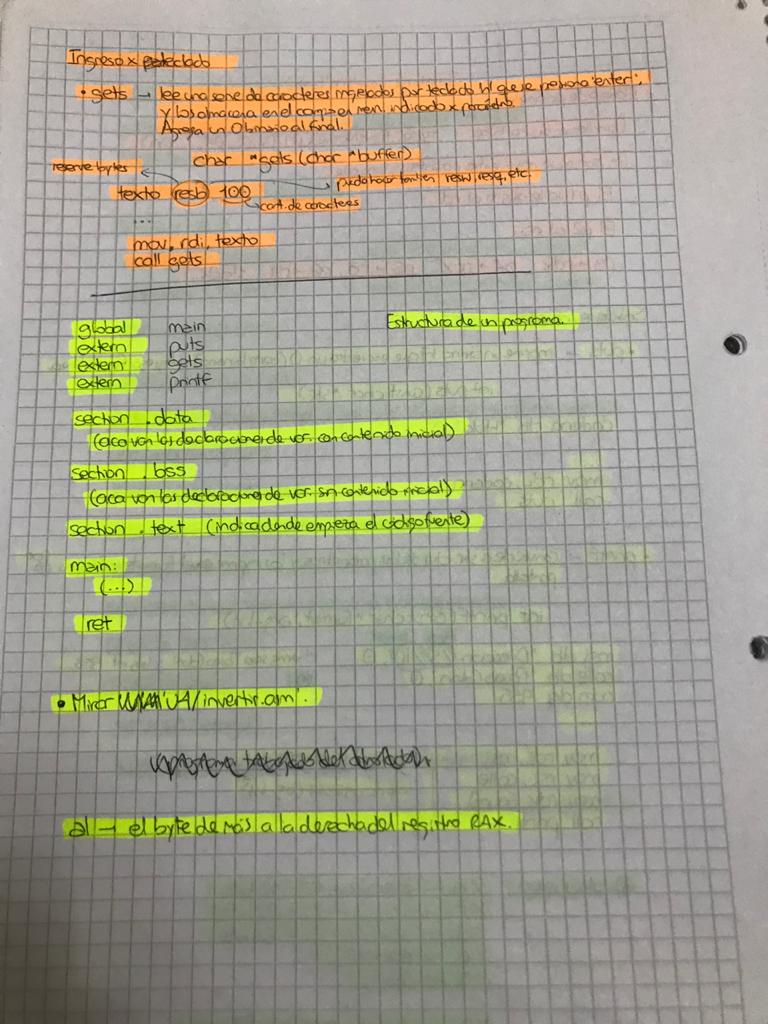 Ingreso x teclado
• gets → lee una serie de caracteres ingresados por teclado h/ que se presiona 'enter';
y los almacena en el campo en mem indicado x parámetro.
Agrega un 0 binario al final.
char *gets (char *buffer)
reserve bytes
puedo hacer tambien resw, resq, etc.
texto resb 100
cant. de caracteres
...
mov, rdi, texto
call gets
Estructura de un programa.
global main
extern puts
extern gets
extern printf
section .data
(aca van las declaraciones de var. con contenido inicial)
section .bss
(aca van las declaraciones de var. sin contenido inicial)
section .text (indica donde empieza el código fuente)
main:
(...)
ret
• Mirar 'U4/invertir.asm'.
al → el byte de más a la derecha del registro RAX.